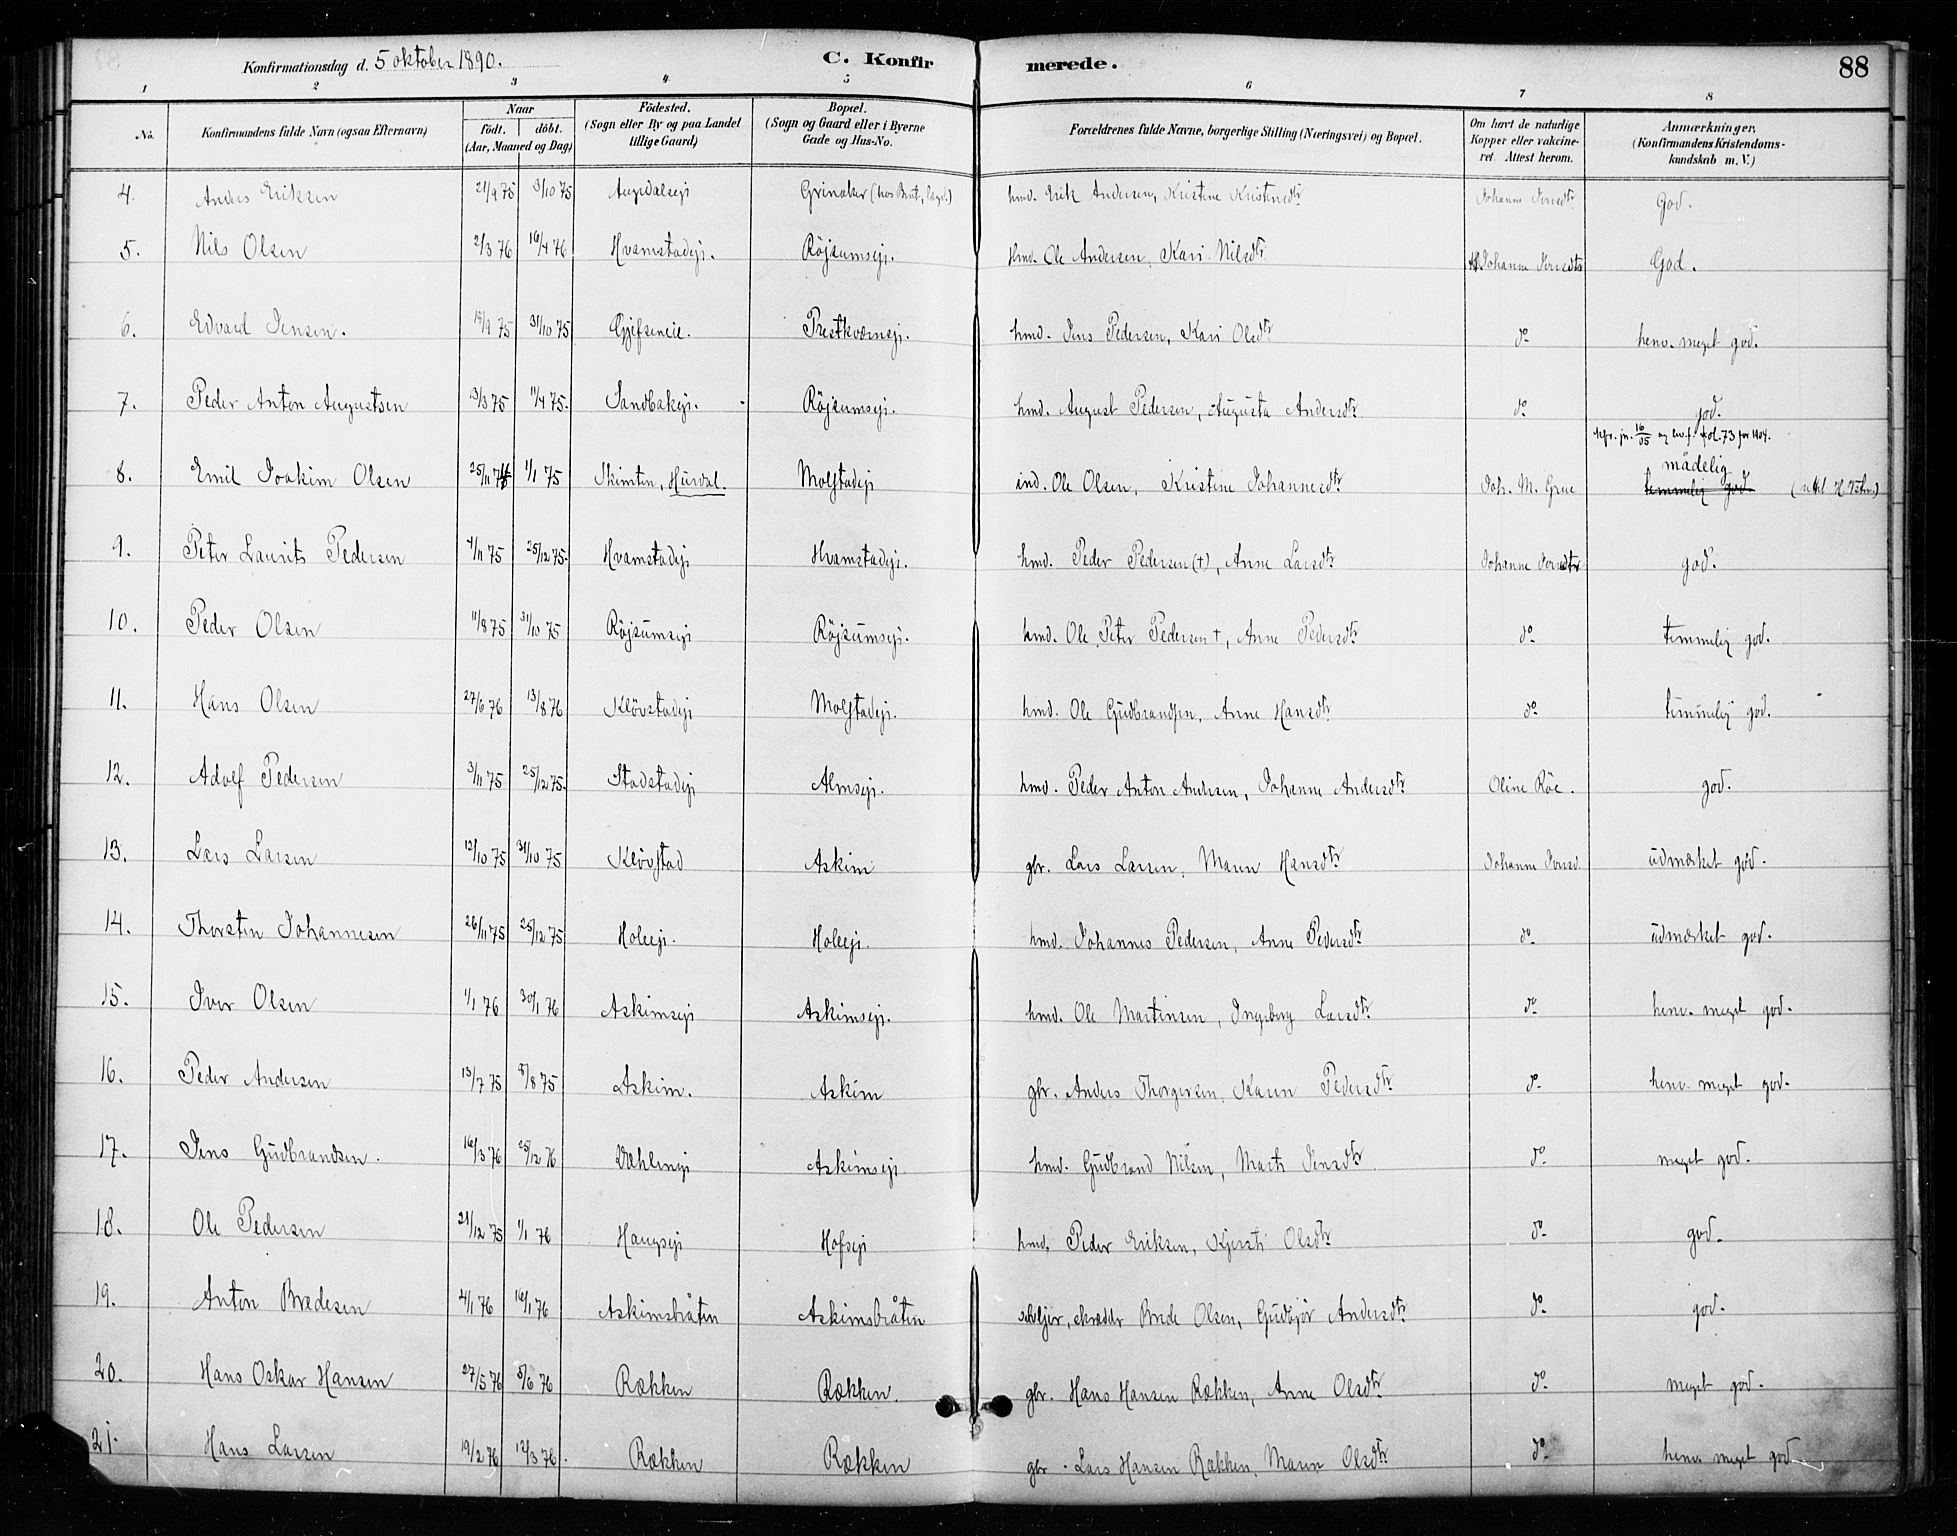 Konfirmationsdag d. 5 oktober 1890. C. Konfirmerede. 88
1 2 3 4 5 6 7 8
No. Konfirmandens fulde Navn (ogsaa Efternavn) Naar født. døbt. (Aar, Maaned og Dag) Fødested. (Sogn eller By og paa Landet tillige Gaard) Bopæl. (Sogn og Gaard eller i Byerne Gade og Hus-No. Forældrenes fulde Navne, borgerlige Stilling (Næringsvei) og Bopæl. Om havt de naturlige Kopper eller vakcineret. Attest herom. Anmærkninger. (Konfirmandens Kristendomskundskab m. V.)
4. Anders Eriksen 21/9 75 3/10 75 Augedalseji Grinaker Hmd. Erik Andersen, Kristine Kristensdtr Johanne Iversdtr God.
5. Nils Olsen 2/3 76 16/4 76 Hvamstadeji. Röjsumseji. Hmd. Ole Andersen, Kari Nilsdtr Johanne Iversdtr God.
6. Edvard Jensen. 19/9 75 31/10 75 Gjefseneie. Prestkværnseji. hmd. Jens Pedersen, Kari Olsdtr do henv. meget god.
7. Peder Anton Augustsen 13/3 75 11/4 75. Sandbakeji. Röjsumseji. hmd. August Pedersen, Augusta Andersdtr do god.
kfr. jn. 16/05 og kol. 73 for 1904.
8. Emil Joakim Olsen 25/11 74 1/1 75 Skimten, Hurdal. Molstadeji ind. Ole Olsen, Kristine Johannesdtr Joh. M. Grue mådelig temmelig god
9. Peter Laurits Pedersen 4/11 75 25/12 75. Hvamstadeji Hvamstadeji. hmd. Peder Pedersen (†), Anne Larsdtr Johanne Iversdtr god.
10. Peder Olsen 11/8 75 31/10 75 Röjsumseji Röjsumseji. hmd. Ole Peter Pedersen †, Anne Pedersdtr do temmelig god.
11. Hans Olsen 27/6 76 13/8 76 Klövstadeji Molstadeji. hmd. Ole Gudbrandsen, Anne Hansdtr do temmelig god.
12. Adolf Pedersen 3/11 75 25/12 75. Stadstadeji Almseji. hmd. Peder Anton Andersen, Johanne Andersdtr Oline Röe. god.
13. Lars Larsen 12/10 75 31/10 75 Klövstad Askim gbr. Lars Larsen, Maren Hansdtr Johanne Iversd. udmærket god.
14. Thorsten Johannesen 26/11 75 25/12 75 Holeeji. Holeeji. hmd. Johannes Pedersen, Anne Pedersdtr do udmærket god.
15. Iver Olsen 1/1 76 30/1 76 Askimseji Askimseji. hmd. Ole Martinsen, Ingeborg Larsdtr do henv. meget god.
16. Peder Andersen 13/7 75 8/8 75 Askim. Askim gbr. Anders Thorgersen, Karen Pedersdtr do henv. meget god.
17. Jens Gudbrandsen. 16/3 76 25/12 76 Dæhleneji Askimseji hmd. Gudbrand Nilsen, Marthe Jensdtr do meget god.
18. Ole Pedersen 21/12 75 1/1 76 Haugseji Hofseji hmd. Peder Eriksen, Kjersti Olsdtr do god.
19. Anton Bredesen 4/1 76 16/1 76 Askimsbråten Askimsbråten selvejer, skrædder Brede Olsen, Gudbjør Andersdtr do god.
20. Hans Oskar Hansen 27/5 76 5/6 76 Rækken Rækken. gbr. Hans Hansen Rækken, Anne Olsdtr do meget god.
21. Hans Larsen 19/2 76 12/3 76. Rækken Rækken gbr. Lars Hansen Rækken, Maren Olsdtr do henv. meget god